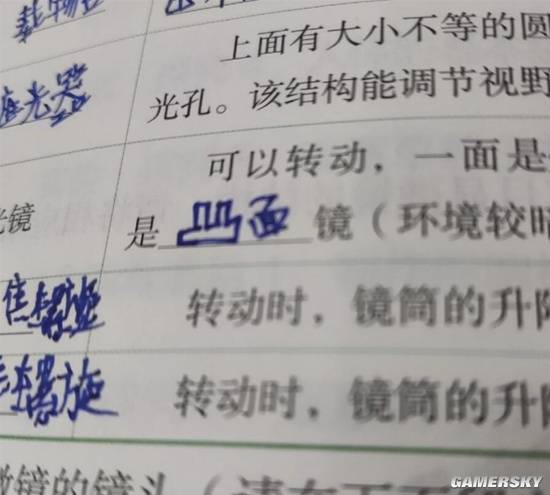 载物台
上面有大小不等的圆
遮光器
光孔。该结构能调节视野
可以转动，一面是
光镜
是 面 镜（环境较暗
焦螺旋
转动时，镜筒的升降
螺旋
转动时，镜筒的升降
微镜的镜头（请在
GAMERSKY